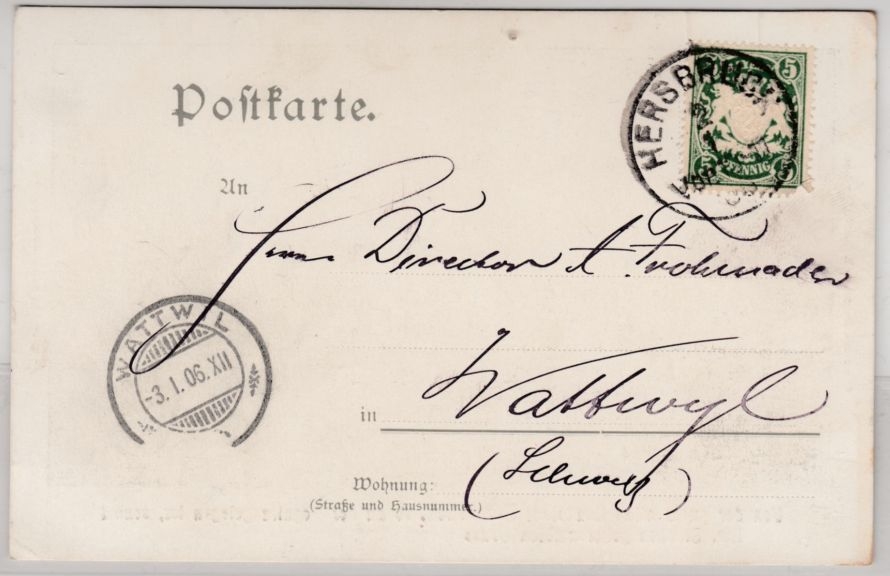 Postkarte.
HERSBRUCK
5
PFENNIG
An
Herrn Director A Frohmader
WATTWIL
-3.I.06.XII
in Wattwyl
(Schweiz)
Wohnung:
(Straße und Hausnummer.)